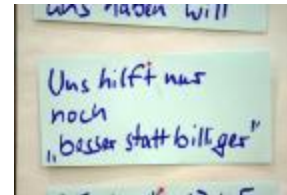 uns haben will
Uns hilft nur
noch
„besser statt billiger"